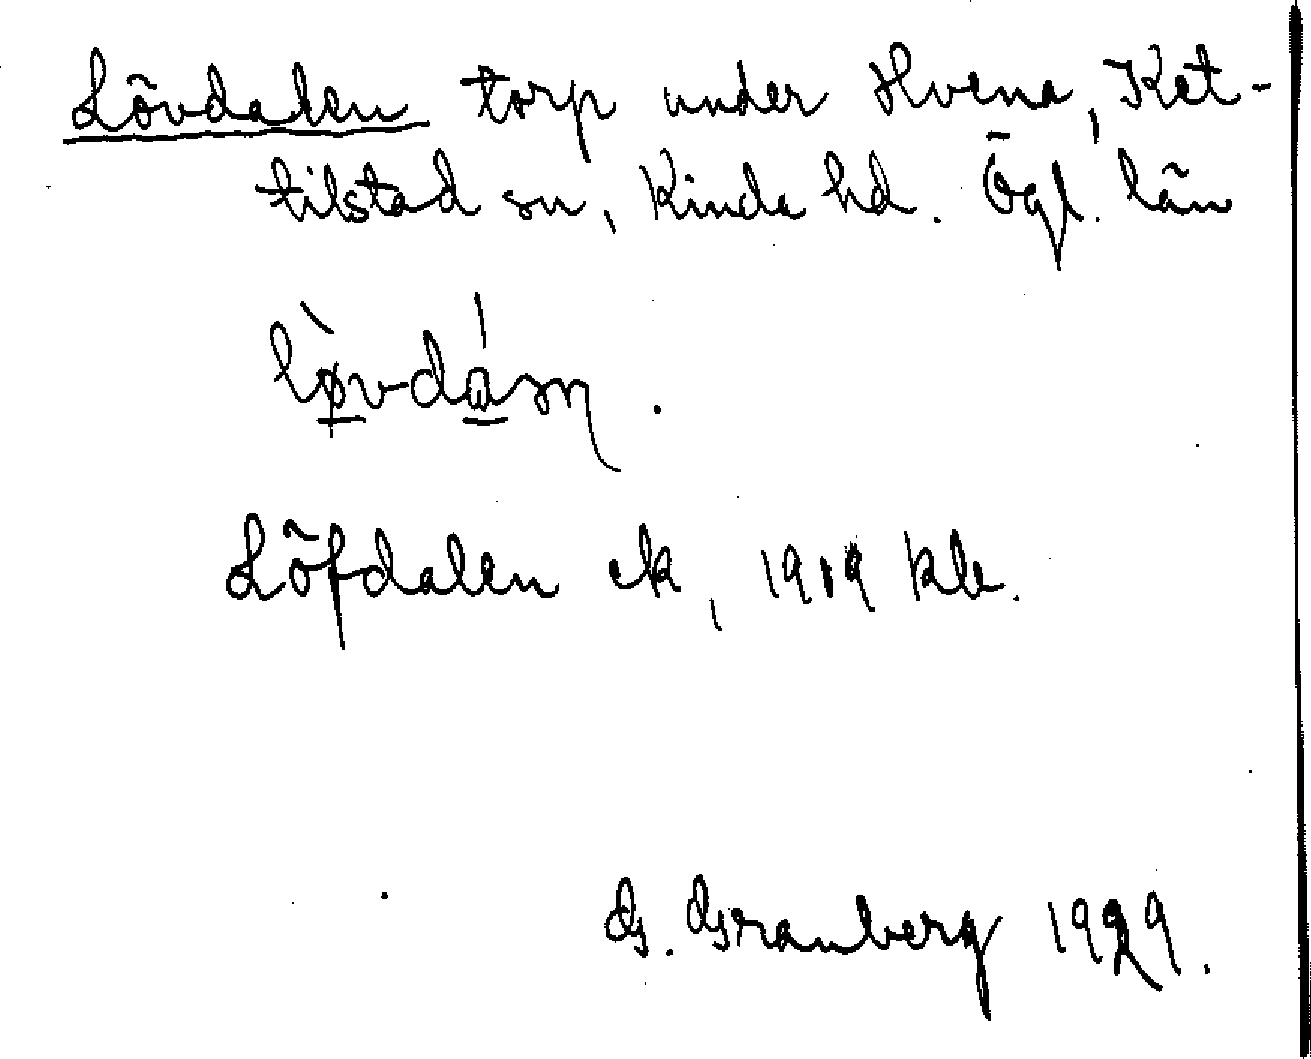 Lövdalen torp under Hvena, Ket-
tilstad sn, Kinda hd. Ögl. län
Löfdalen ek, 1919 kb.
G. Granberg 1929.